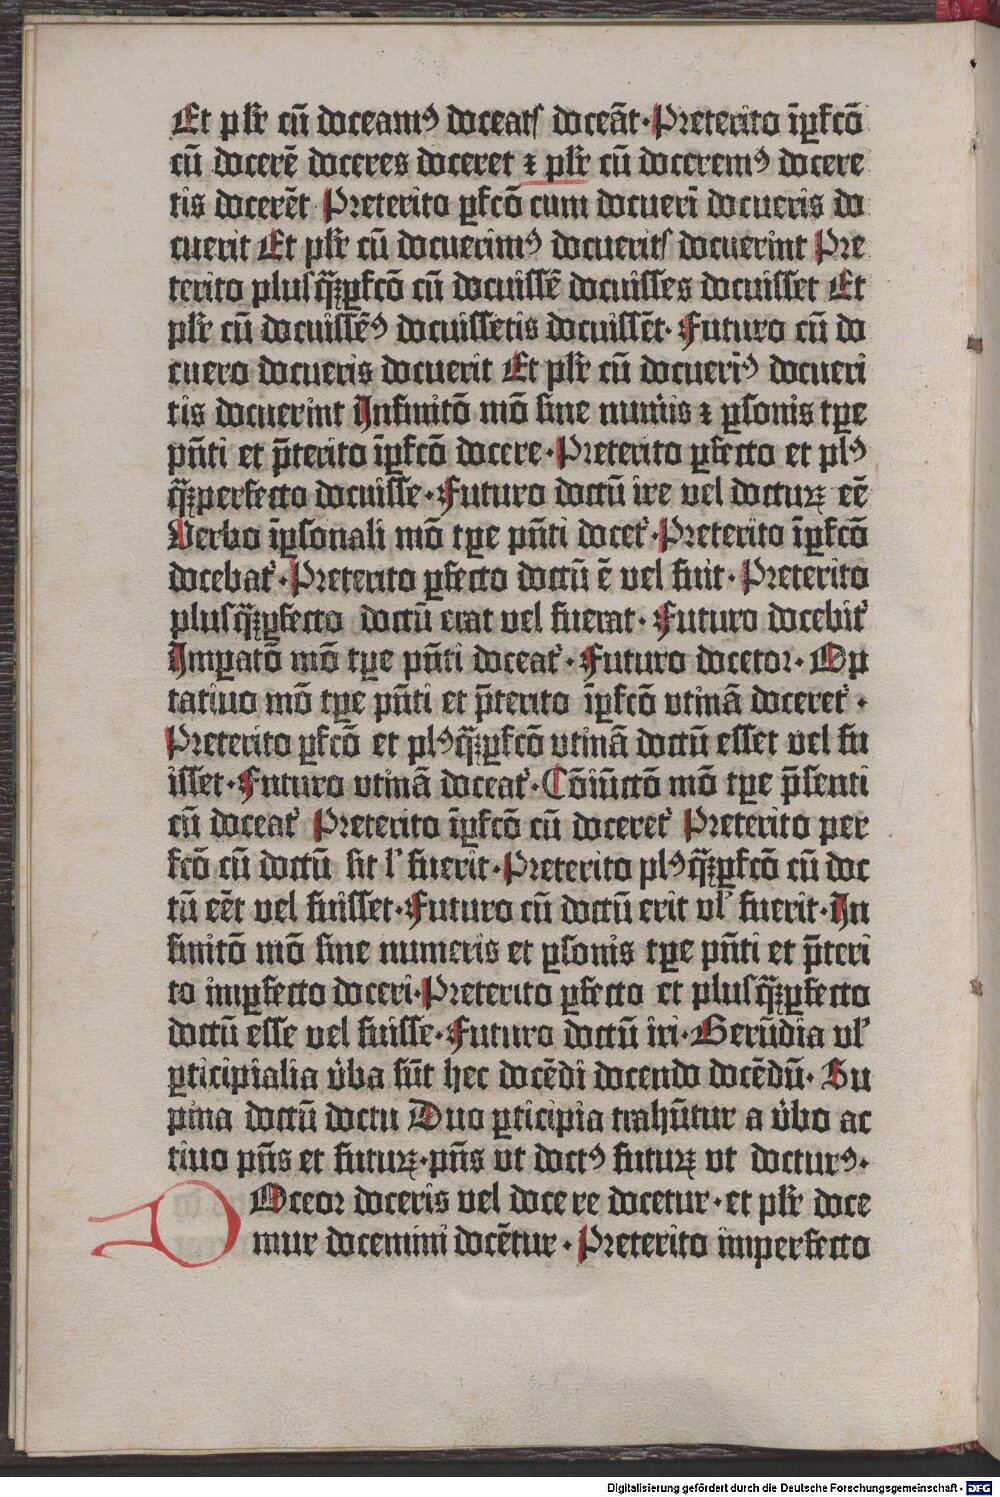 Et pl̄r cū doceamꝰ doceatꝭ doceāt· Preterito īꝑfcō
cū docerē doceres doceret ⁊ pl̄r cū doceremꝰ docere
tis docerēt Preterito ꝑfcō cum docuerī docueris do
cuerit Et pl̄r cū docuerimꝰ docueritꝭ docuerint Pre
terito plusq̄ꝫꝑfcō cū docuissē docuisses docuisset Et
pl̄r cū docuissēꝰ docuissetis docuissēt· Futuro cū do
cuero docueris docuerit Et pl̄r cū docuerīꝰ docueri
tis docuerint Infinitō mō sine nūis ⁊ ꝑsonis tꝑe
pn̄ti et p̄terito īꝑfcō docere· Preterito ꝑfecto et plꝰ
q̄ꝫperfecto docuisse· Futuro doctū ire vel docturꝫ eē
Verbo īꝑsonali mō tꝑe pn̄ti docet᷑· Preterito īꝑfcō
docebat᷑· Preterito ꝑfecto doctū ē vel fuit· Preterito
plusq̄ꝫꝑfecto doctū erat vel fuerat· Futuro docebit᷑
Imꝑatō mō tꝑe pn̄ti doceat᷑· Futuro docetor· Op
tatiuo mō tꝑe pn̄ti et p̄terito īꝑfcō vtinā doceret᷑·
Preterito ꝑfcō et plꝰq̄ꝫꝑfcō vtinā doctū esset vel fu
isset· Futuro vtinā doceat᷑· Cōiūctō mō tꝑe p̄senti
cū doceat᷑ Preterito īꝑfcō cū doceret᷑ Preterito per
fcō cū doctū sit lˀ fuerit· Preterito plꝰq̄ꝫꝑfcō cū doc
tū eēt vel fuisset· Futuro cū doctū erit vlˀ fuerit· In
finitō mō sine numeris et ꝑsonis tꝑe pn̄ti et p̄teri
to imꝑfecto doceri· Preterito ꝑfecto et plusq̄ꝫꝑfecto
doctū esse vel fuisse· Futuro doctū iri· Gerūdia vlˀ
ꝑticipialia v̓ba sūt hec docēdi docendo docēdū· Su
pina doctū doctu Duo ꝑticipia trahūtur a v̓bo ac
tiuo pn̄s et futurꝫ· pn̄s vt doctꝰ futurꝫ vt docturꝰ·
DOceor doceris vel doce re docetur· et pl̄r doce
mur docemini docētur· Preterito imperfecto
Digitalisierung gefördert durch die Deutsche Forschungsgemeinschaft - DFG